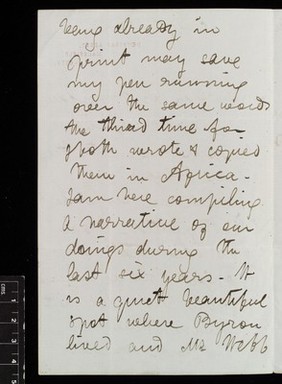 being already in
print may save
my pen running
over the same words
the third time for
I both wrote & copied
them in Africa -
I am here compiling
a narrative of our
doings during the
last six years - It
is a quiet beautiful
spot where Byron
lived and Mr Webb